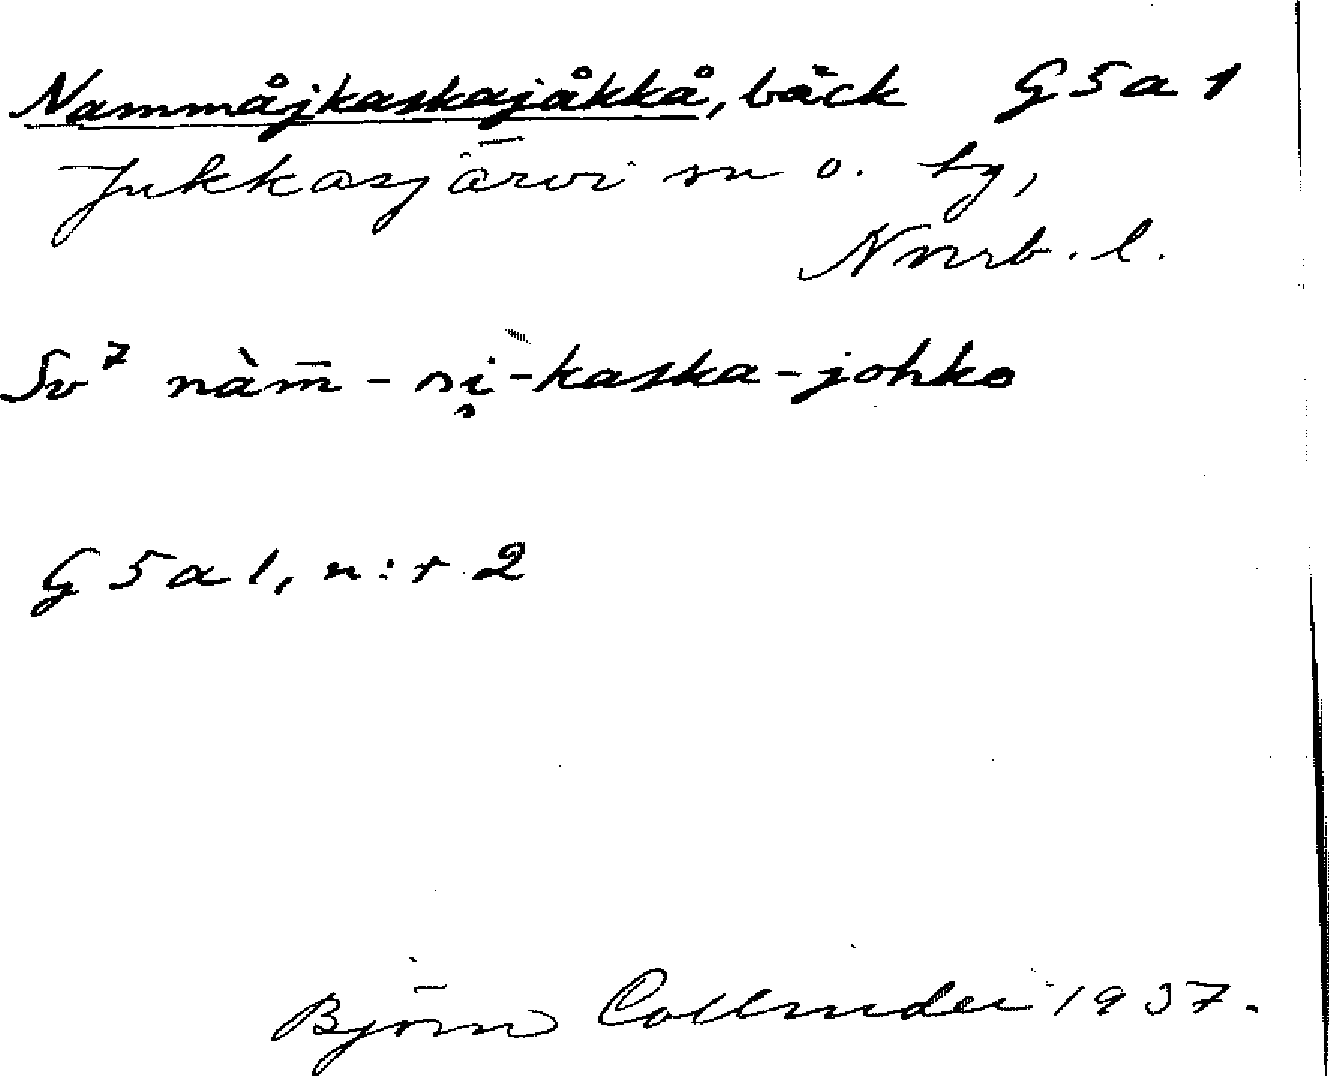 Nammåjkaskajåkkå, bäck G 5 a 1
Jukkasjärvi sn o. tg,
Norrb. l.
Sv 7 nàm̄ - -kaska-johko
G 5 a 1, n:r 2
Björn Collinder 1937.